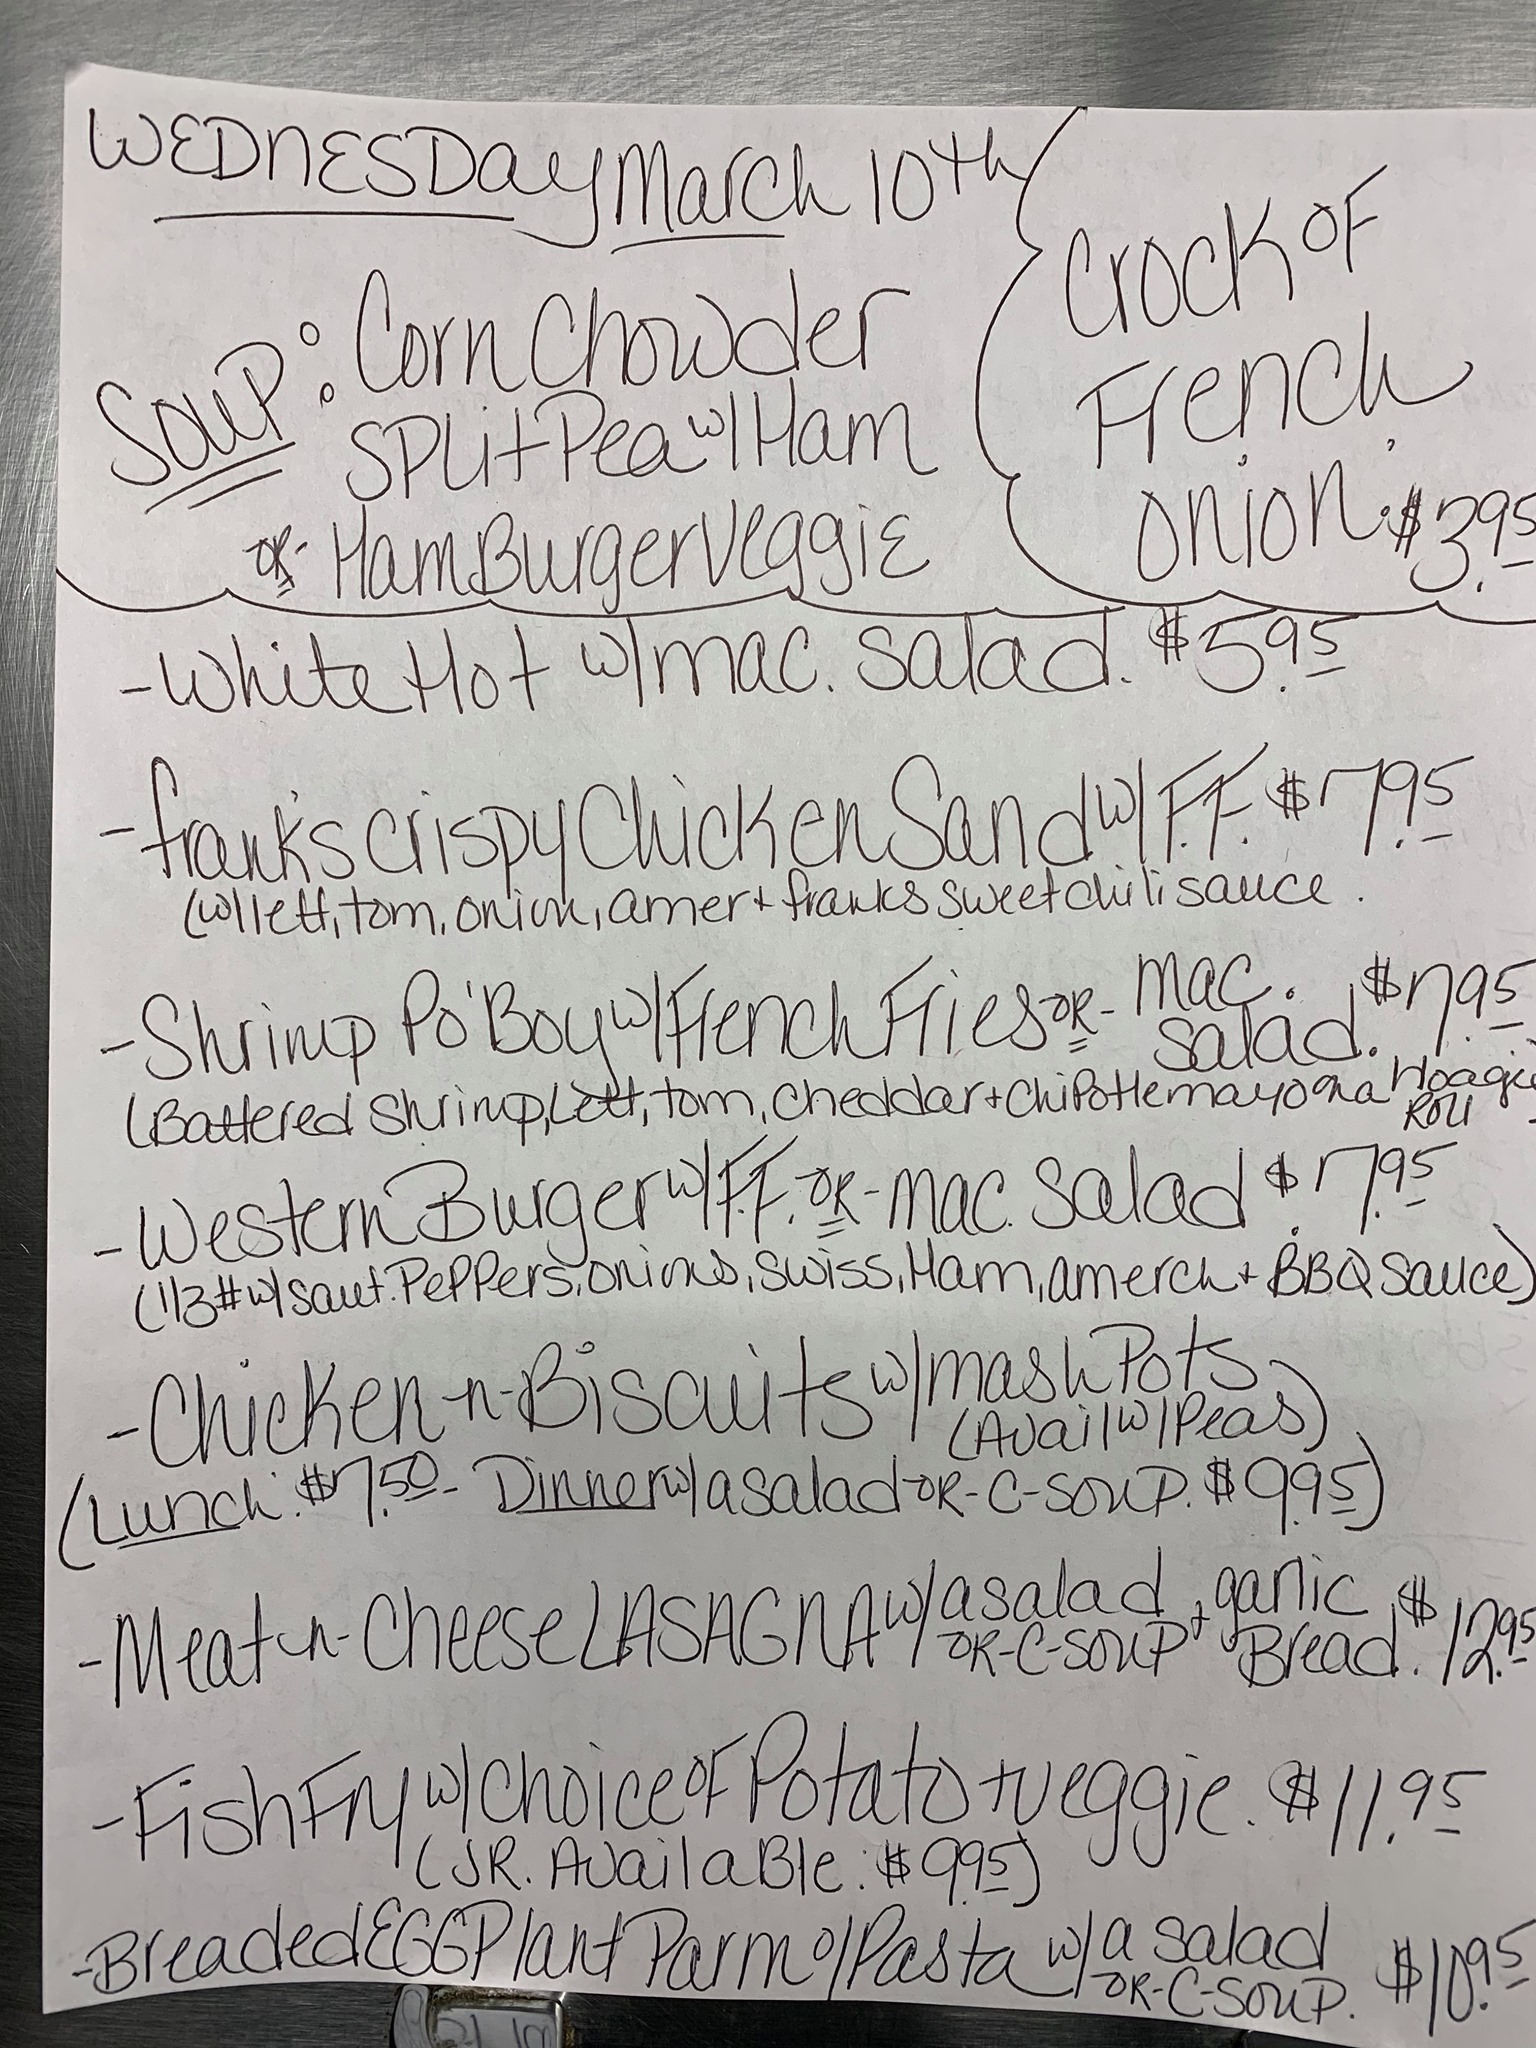 WEDNESDay March 10th
Soup: Corn Chowder
Split Pea w/ Ham
-or- HamBurger Veggie
Crock of
French
Onion. $3.95
- White Hot w/ mac. salad. $5.95
- Frank's Crispy Chicken Sand w/ F.F. $7.95
(w/ lett, tom, onion, amer + franks sweet chili sauce.
- Shrimp Po'Boy w/ French Fries -or- mac. salad. $7.95
(Battered Shrimp, Lett, tom, cheddar + chipotle mayo on a Hoagie Roll
- Western Burger w/ F.F. -or- mac. salad $7.95
(1/3# w/ saut. Peppers, onions, swiss, Ham, amer ch + BBQ sauce)
- Chicken-n-Biscuits w/ mash Pots
(Avail w/ Peas)
(Lunch: $7.50 - Dinner w/ a salad -or- C-soup. $9.95)
- Meat-n-Cheese LASAGNA w/ a salad -or- C-soup + garlic Bread. $12.95
- Fish Fry w/ choice of Potato + veggie. $11.95
(JR. Available: $9.95)
- Breaded EGGPlant Parm o/ Pasta w/ a salad -or- C-soup. $10.95